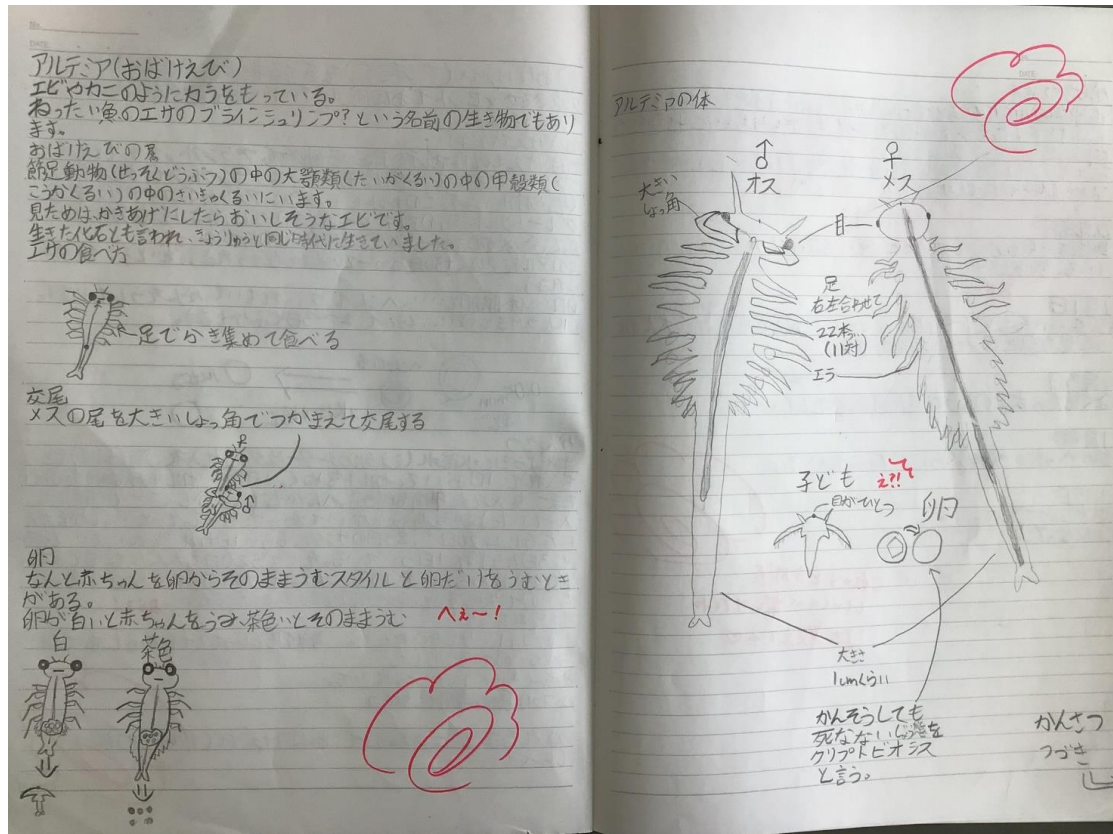 アルテミア(おばけえび)
エビやカニのようにカラをもっている。
ねったい魚のエサのブラインシュリンプ?という名前の生き物でもあり
ます。
おばけえびの
節足動物(せっそくどうぶつ)の中の大顎類(たいがくるい)の中の甲殻類(
こうかくるい)の中のさいきゃくるいにいます。
見ためは、かきあげにしたらおいしそうなエビです。
生きた化石とも言われ、きょうりゅうと同じ時代に生きていました。
エサの食べ方
足でかき集めて食べる
交尾
メスの尾を大きいしょっ角でつかまえて交尾する
♀
♂
卵
なんと赤ちゃんを卵からそのままうむスタイルと卵だけをうむとき
がある。
卵が白いと赤ちゃんをうみ、茶色いとそのままうむ
へぇ〜!
白
茶色
No.
DATE
アルテミアの体
♂
オス
♀
メス
大きい
しょっ角
目
足
右左合わせて
22本
(11対)
エラ
子ども
え?!
目がひとつ
卵
大きさ
1cmくらい
かんそうしても
死なないじょう態を
クリプトビオシス
と言う。
かんさつ
つづき